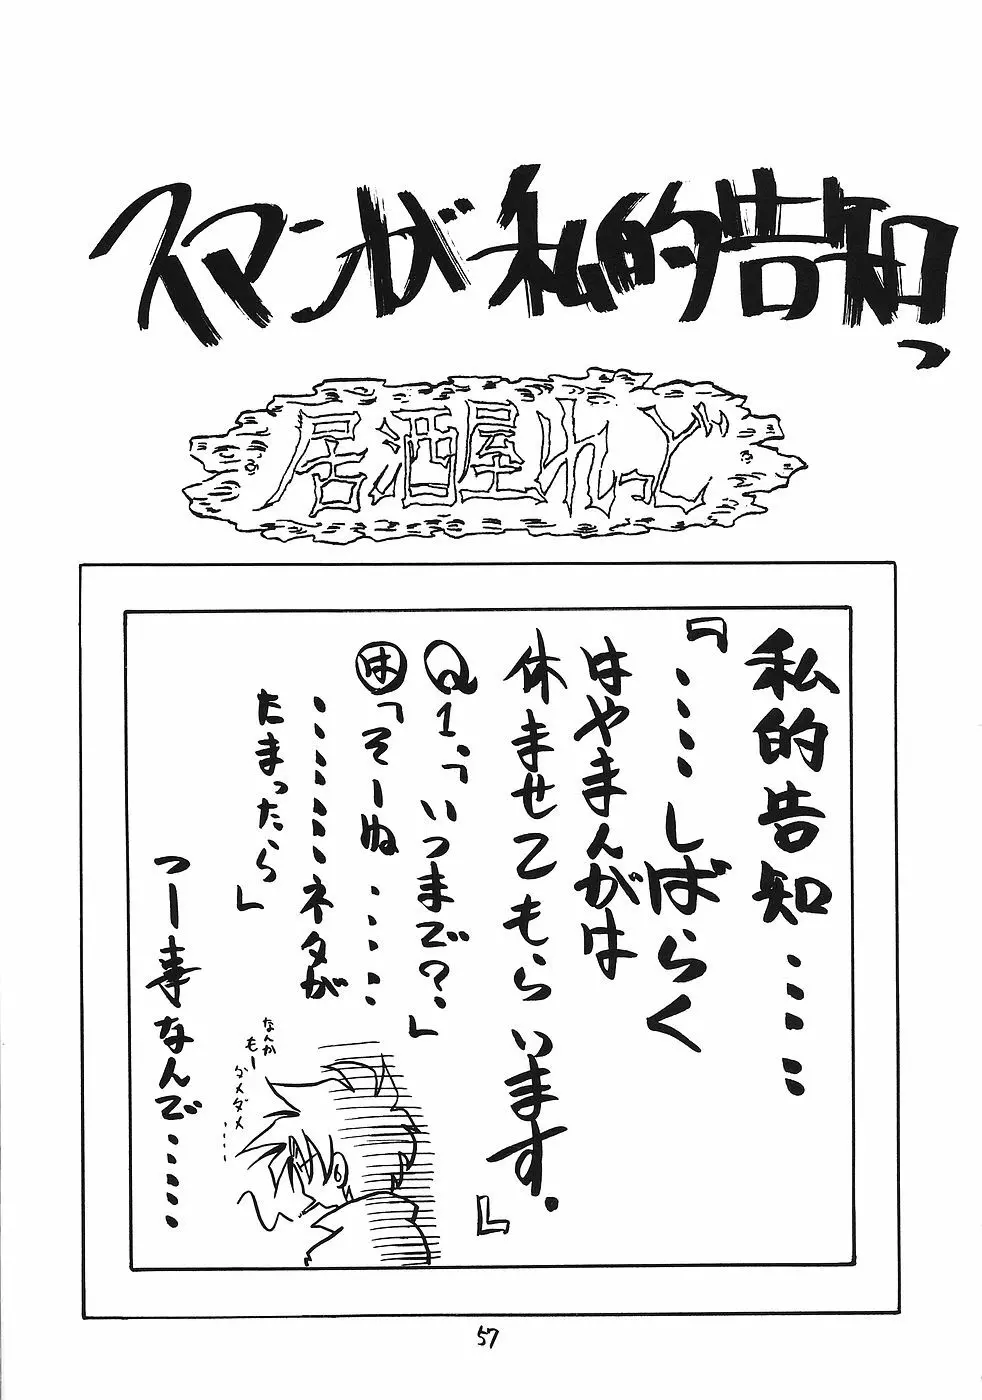 スマンが私的告知っ
居酒屋れっど
私的告知‥‥‥
『‥‥しばらく
はやまんがは
休ませてもらいます。』
Q1.「いつまで?」
は「そーぬ‥‥‥
‥‥‥‥ネタが
たまったら」
つー事なんで‥‥‥
なんか
もー
ダメダメ
‥‥
57